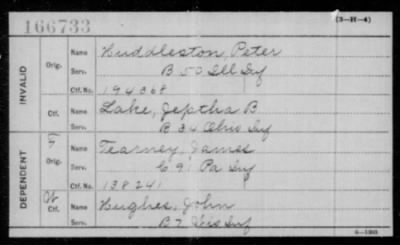 166733
(3-H-4)
INVALID
Orig.
Name Huddleston, Peter
Serv. B 50 Ill Inf
Ctf. No. 194368
Ctf.
Name Lake, Jeptha B
Serv. B 34 Ohio Inf
DEPENDENT
Orig.
Name Tearney, James
Serv. C 91 Pa Inf
Ctf. No. 138241
Ctf.
Name Hughes, John
Serv. B 7 Wis Inf